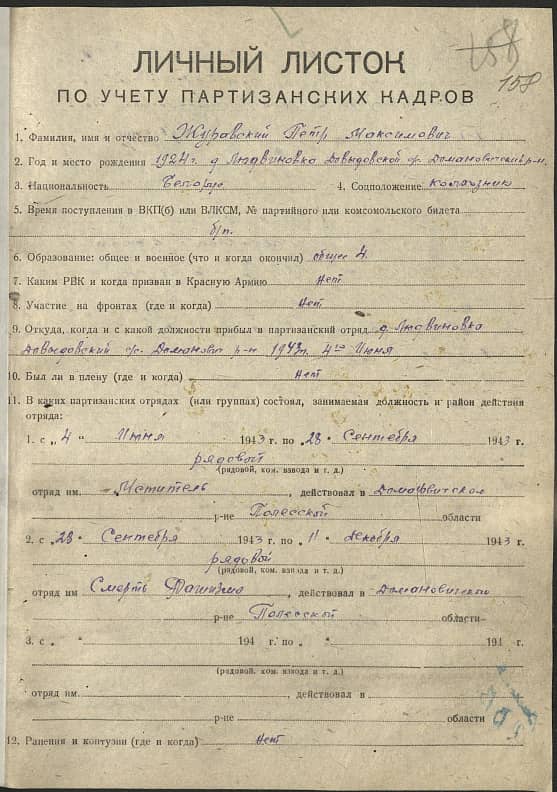 158
158
ЛИЧНЫЙ ЛИСТОК
ПО УЧЕТУ ПАРТИЗАНСКИХ КАДРОВ
1. Фамилия, имя и отчество Журавский Петр Максимович
2. Год и место рождения 1924 г. д. Людвиновка Довыдовской с/с. Домановитский р-н.
3. Национальность Белорус 4. Соцположение колхозник
5. Время поступления в ВКП(б) или ВЛКСМ, № партийного или комсомольского билета
б/п.
6. Образование: общее и военное (что и когда окончил) общее 4
7. Каким РВК и когда призван в Красную Армию Нет
8. Участие на фронтах (где и когда) Нет
9. Откуда, когда и с какой должности прибыл в партизанский отряд д. Людвиновка
Довыдовский с/с. р-н 1943 г. 4го Июня
10. Был ли в плену (где и когда) Нет
11. В каких партизанских отрядах (или группах) состоял, занимаемая должность и район действия
отряда:
1. с „4 “ Июня 1943 г. по „28 “ Сентября 1943 г.
рядовой
(рядовой, ком. взвода и т. д.)
отряд им. Мститель, действовал в
р-не Полесской области
2. с „28 “ Сентября 1943 г. по „11 “ Декабря 1943 г.
рядовой
(рядовой, ком. взвода и т. д.)
отряд им Смерть Фашизма, действовал в
р-не Полесской области
3. с „ “ 194 г. по „ “ 194 г.
(рядовой, ком. взвода и т. д.)
отряд им. , действовал в
р-не области
12. Ранения и контузии (где и когда) Нет